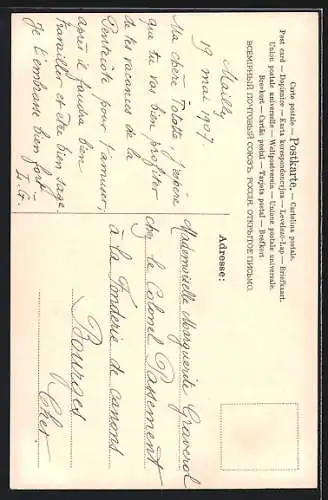 Carte postale — Postkarte. — Cartolina postale.
Post card — Dopisnice — Karta korrespondencyjna — Levelező-Lap — Briefkaart.
Union postale universelle — Weltpostverein — Unione postale universale.
Brevkort — Cartão postal — Tarjeta postal — Brefkort.
ВСЕМІРНЫЙ ПОЧТОВЫЙ СОЮЗЪ. РОССІЯ. ОТКРЫТОЕ ПИСЬМО.
Mailly
19 mai 1907
Ma chère Tototte, j'espère
que tu vas bien profiter
de tes vacances de la
Pentecôte pour t'amuser
après il faudra bien
travailler et être bien sage
Je t'embrasse bien fort
Adresse:
Mademoiselle Marguerite Graverol
chez le Colonel Passement
à la Fonderie de canons
Bourges
Cher